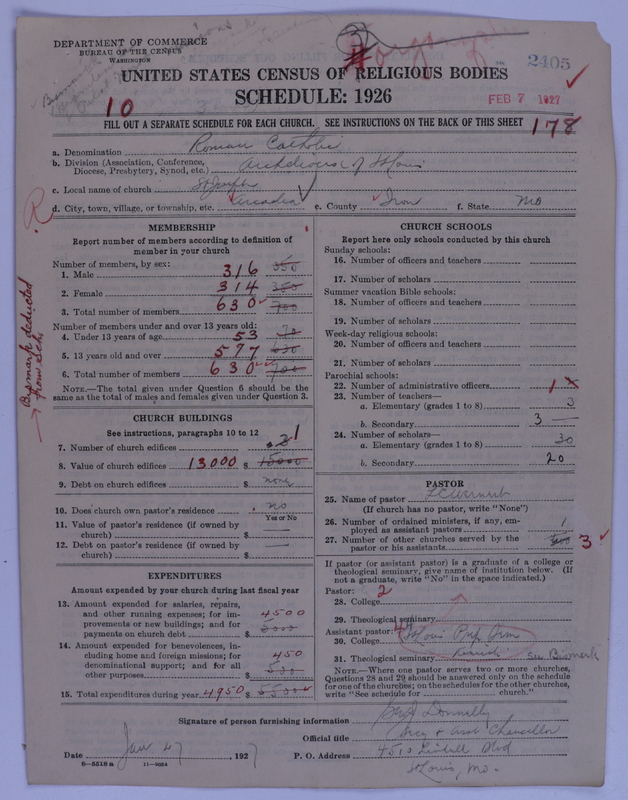 DEPARTMENT OF COMMERCE
BUREAU OF THE CENSUS
WASHINGTON
2405
UNITED STATES CENSUS OF RELIGIOUS BODIES
SCHEDULE: 1926
10
FEB 7 1927
FILL OUT A SEPARATE SCHEDULE FOR EACH CHURCH. SEE INSTRUCTIONS ON THE BACK OF THIS SHEET
178
a. Denomination Roman Catholic
b. Division (Association, Conference, Diocese, Presbytery, Synod, etc.) Archdiocese of St Louis
c. Local name of church St Joseph
d. City, town, village, or township, etc. Arcadia e. County Iron f. State Mo
R
Bismark deducted from Sch.
MEMBERSHIP
Report number of members according to definition of
member in your church
Number of members, by sex:
1. Male 316 350
2. Female 314 350
3. Total number of members 630 700
Number of members under and over 13 years old:
4. Under 13 years of age 53 70
5. 13 years old and over 577 630
6. Total number of members 630 700
NOTE.—The total given under Question 6 should be the
same as the total of males and females given under Question 3.
CHURCH BUILDINGS
See instructions, paragraphs 10 to 12
7. Number of church edifices 2 1
8. Value of church edifices 13000 $ 15000
9. Debt on church edifices $ none
10. Does church own pastor's residence no
Yes or No
11. Value of pastor's residence (if owned by
church) $ —
12. Debt on pastor's residence (if owned by
church) $ —
EXPENDITURES
Amount expended by your church during last fiscal year
13. Amount expended for salaries, repairs,
and other running expenses; for im-
provements or new buildings; and for
payments on church debt $ 4500 5000
14. Amount expended for benevolences, in-
cluding home and foreign missions; for
denominational support; and for all
other purposes $ 450 500
15. Total expenditures during year 4950 $ 5500
CHURCH SCHOOLS
Report here only schools conducted by this church
Sunday schools:
16. Number of officers and teachers
17. Number of scholars
Summer vacation Bible schools:
18. Number of officers and teachers
19. Number of scholars
Week-day religious schools:
20. Number of officers and teachers
21. Number of scholars
Parochial schools:
22. Number of administrative officers 1
23. Number of teachers—
a. Elementary (grades 1 to 8) 3
b. Secondary 3 —
24. Number of scholars—
a. Elementary (grades 1 to 8) 30
b. Secondary 20
PASTOR
25. Name of pastor
(If church has no pastor, write "None")
26. Number of ordained ministers, if any, em-
ployed as assistant pastors 1
27. Number of other churches served by the
pastor or his assistants 3
If pastor (or assistant pastor) is a graduate of a college or
theological seminary, give name of institution below. (If
not a graduate, write "No" in the space indicated.)
Pastor: 2
28. College
29. Theological seminary
Assistant pastor:
30. College St Louis Prep
31. Theological seminary Kenrick see Bismark
NOTE.—Where one pastor serves two or more churches,
Questions 28 and 29 should be answered only on the schedule
for one of the churches; on the schedules for the other churches,
write "See schedule for church."
Signature of person furnishing information Donnelly
Official title Secy & Asst Chancellor
Date Jan 4, 1927 P. O. Address 4510 Lindell Blvd
8—5518 a 11—9034
St Louis, Mo.